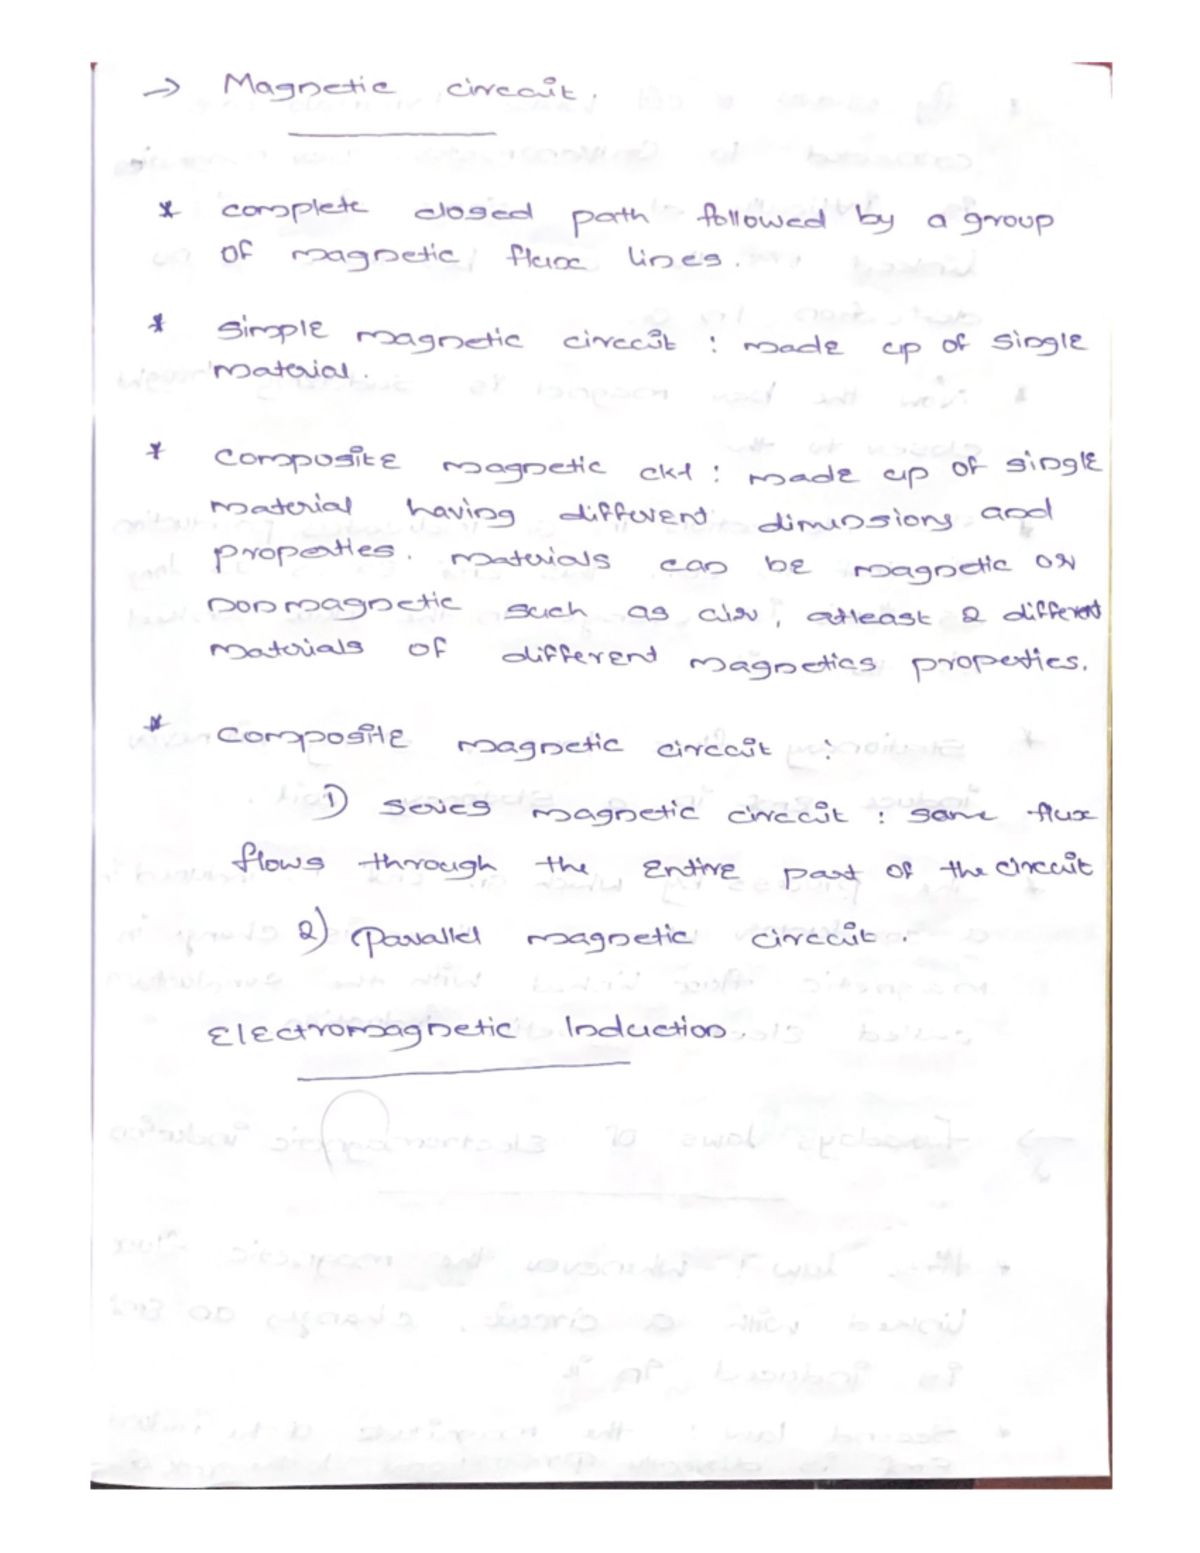 → Magnetic circuit.
* complete closed path followed by a group
of magnetic flux lines.
* simple magnetic circuit : made up of single
material.
* composite magnetic ckt : made up of single
material having different dimensions and
properties. materials can be magnetic or
nonmagnetic such as air, atleast 2 different
materials of different magnetics properties.
* composite magnetic circuit :
1) series magnetic circuit : same flux
flows through the entire part of the circuit
2) parallel magnetic circuit.
Electromagnetic Induction.